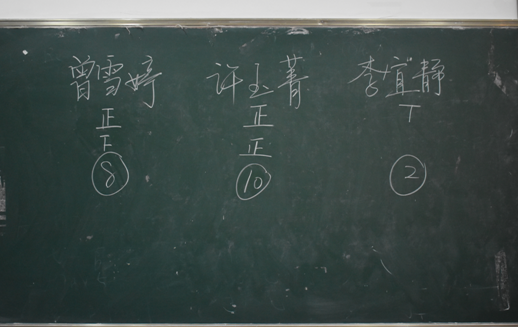 曾雪婷 许玉菁 李宜静
正 正 T
下 正
⑧ ⑩ ②